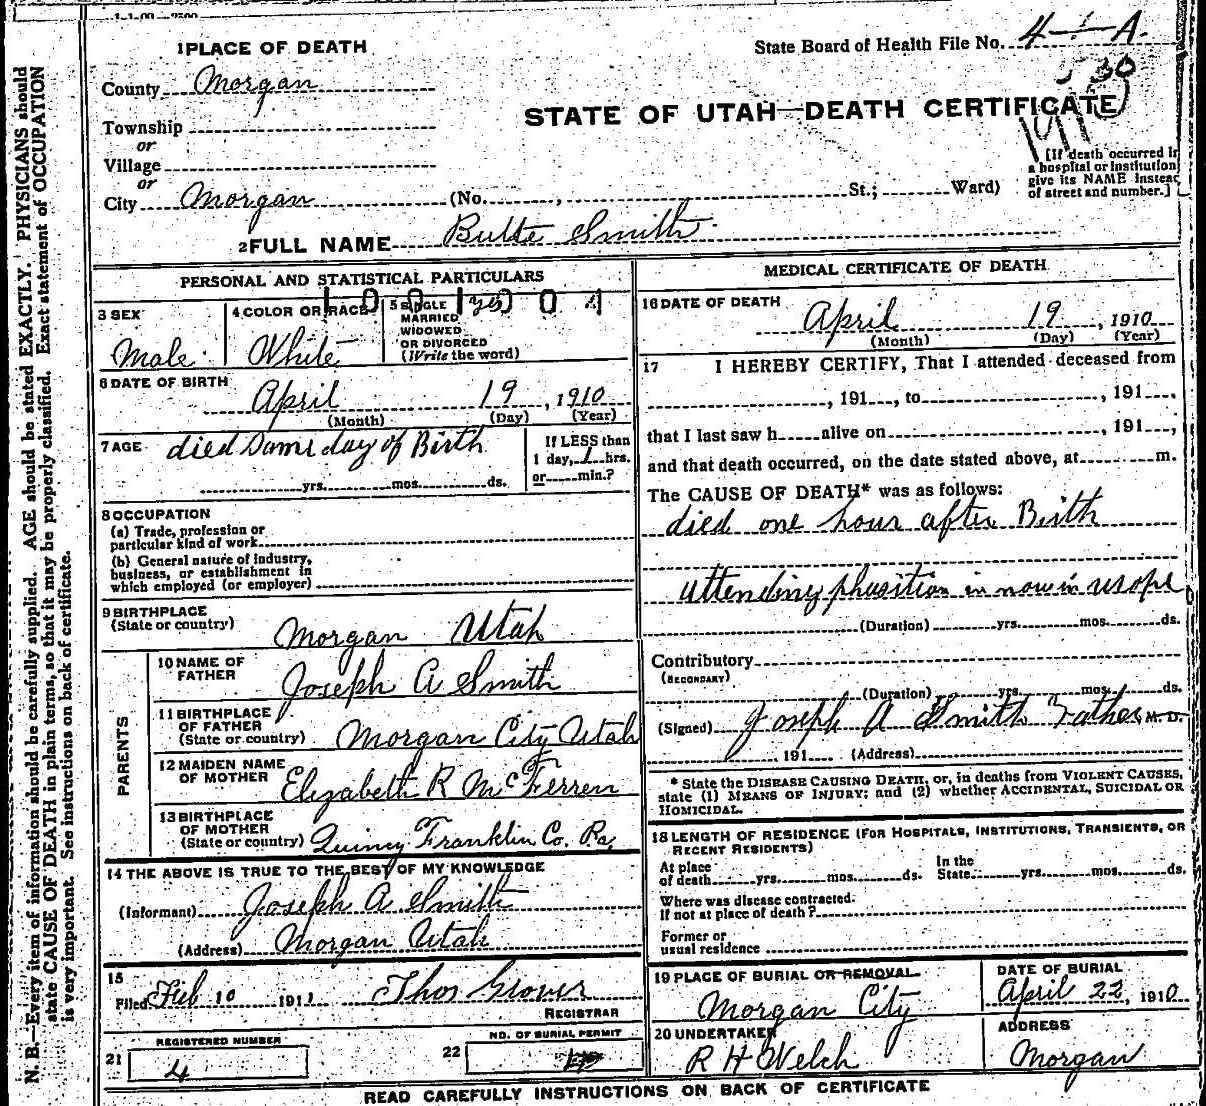 1 PLACE OF DEATH
State Board of Health File No. 4-A.
County Morgan
530
STATE OF UTAH—DEATH CERTIFICATE
1910
Township
or
Village
or
City Morgan (No. , St.; Ward)
[If death occurred in
a hospital or institution
give its NAME instead
of street and number.]
2 FULL NAME Butte Smith
PERSONAL AND STATISTICAL PARTICULARS
3 SEX
Male
4 COLOR OR RACE
White
5 SINGLE
MARRIED
WIDOWED
OR DIVORCED
(Write the word)
yes
6 DATE OF BIRTH
April 19, 1910
(Month) (Day) (Year)
7 AGE died Same day of Birth
yrs. mos. ds.
If LESS than
1 day, 1 hrs.
or min.?
8 OCCUPATION
(a) Trade, profession or
particular kind of work
(b) General nature of industry,
business, or establishment in
which employed (or employer)
9 BIRTHPLACE
(State or country)
Morgan Utah
PARENTS
10 NAME OF
FATHER
Joseph A Smith
11 BIRTHPLACE
OF FATHER
(State or country)
Morgan City Utah
12 MAIDEN NAME
OF MOTHER
Elizabeth R McFerren
13 BIRTHPLACE
OF MOTHER
(State or country)
Quincy Franklin Co. Pa,
14 THE ABOVE IS TRUE TO THE BEST OF MY KNOWLEDGE
(Informant) Joseph A Smith
(Address) Morgan Utah
15
Filed Feb 10 1911 Thos Grover
REGISTRAR
REGISTERED NUMBER
21 4
NO. OF BURIAL PERMIT
22
MEDICAL CERTIFICATE OF DEATH
16 DATE OF DEATH
April 19, 1910
(Month) (Day) (Year)
17 I HEREBY CERTIFY, That I attended deceased from
, 191 , to , 191 ,
that I last saw h alive on , 191 ,
and that death occurred, on the date stated above, at m.
The CAUSE OF DEATH* was as follows:
died one hour after Birth
attending phusition in now in urope
(Duration) yrs. mos. ds.
Contributory
(SECONDARY)
(Duration) yrs. mos. ds.
(Signed) Joseph A Smith Father, M. D.
191 (Address)
* State the DISEASE CAUSING DEATH, or, in deaths from VIOLENT CAUSES,
state (1) MEANS OF INJURY; and (2) whether ACCIDENTAL, SUICIDAL OR
HOMICIDAL.
18 LENGTH OF RESIDENCE (FOR HOSPITALS, INSTITUTIONS, TRANSIENTS, OR
RECENT RESIDENTS)
At place
of death yrs. mos. ds.
In the
State yrs. mos. ds.
Where was disease contracted.
If not at place of death?
Former or
usual residence
19 PLACE OF BURIAL OR REMOVAL
Morgan City
DATE OF BURIAL
April 22, 1910
20 UNDERTAKER
R H Welch
ADDRESS
Morgan
READ CAREFULLY INSTRUCTIONS ON BACK OF CERTIFICATE
N. B.—Every item of information should be carefully supplied. AGE should be stated EXACTLY. PHYSICIANS should
state CAUSE OF DEATH in plain terms, so that it may be properly classified. Exact statement of OCCUPATION
is very important. See instructions on back of certificate.